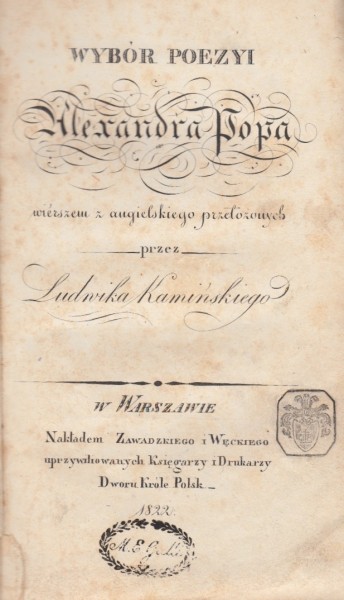 WYBÓR POEZYI
Alexandra Popa
wiérszem z angielskiego przełożonych
przez
Ludwika Kamińskiego
W WARSZAWIE
Nakładem ZAWADZKIEGO I WĘCKIEGO
uprzywilejowanych Księgarzy i Drukarzy
Dworu Króle Polsk
1822.
M. E.